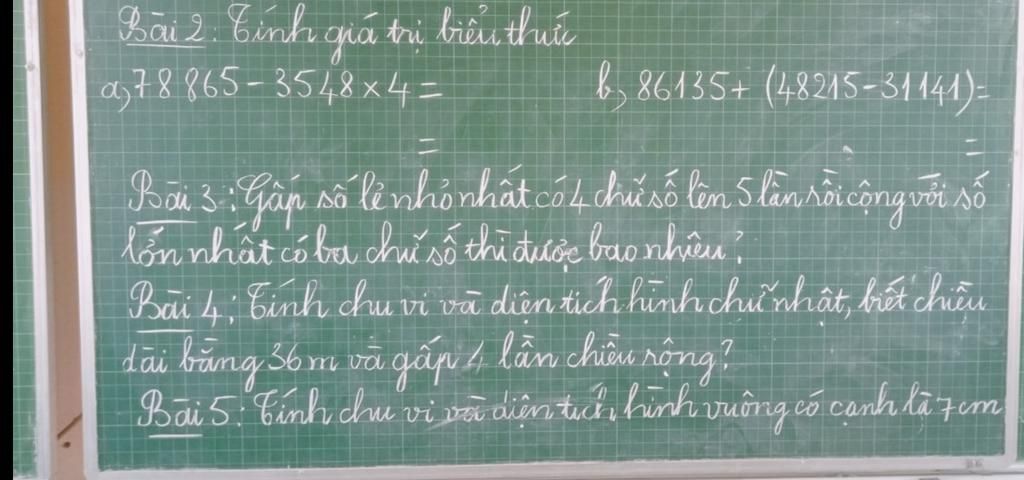 Bài 2: Tính giá trị biểu thức
a, 78865 - 3548 × 4 = b, 86135 + (48215 - 31141) =
= =
Bài 3: Gấp số lẻ nhỏ nhất có 4 chữ số lên 5 lần rồi cộng với số
lớn nhất có ba chữ số thì được bao nhiêu?
Bài 4: Tính chu vi và diện tích hình chữ nhật, biết chiều
dài bằng 36m và gấp 4 lần chiều rộng?
Bài 5: Tính chu vi và diện tích hình vuông có cạnh là 7cm